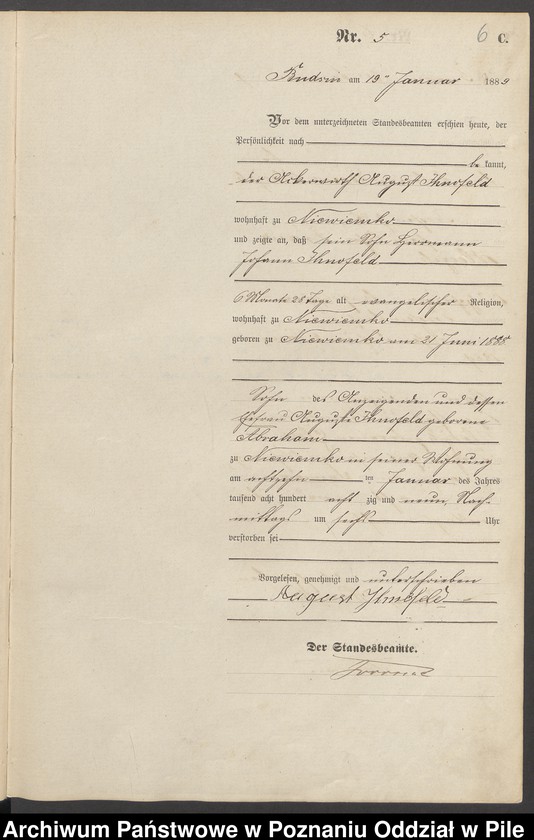 Nr. 5
6 C.
Budsin am 19ten Januar 1889
Vor dem unterzeichneten Standesbeamten erschien heute, der
Persönlichkeit nach
be kannt,
der Ackerwirth August
wohnhaft zu Niewiemko
und zeigte an, daß sein Sohn Herrmann
Johann
6 Monate 28 Tage alt evangelischer Religion,
wohnhaft zu Niewiemko
geboren zu Niewiemko am 21 Juni 1888
Sohn des Anzeigenden und dessen
Ehefrau Auguste geborene
Abraham
zu Niewiemko in seiner Wohnung
am achtzehn ten Januar des Jahres
tausend acht hundert acht zig und neun, Nach-
mittags um sechs Uhr
verstorben sei
Vorgelesen, genehmigt und unterschrieben
August
Der Standesbeamte.
Archiwum Państwowe w Poznaniu Oddział w Pile